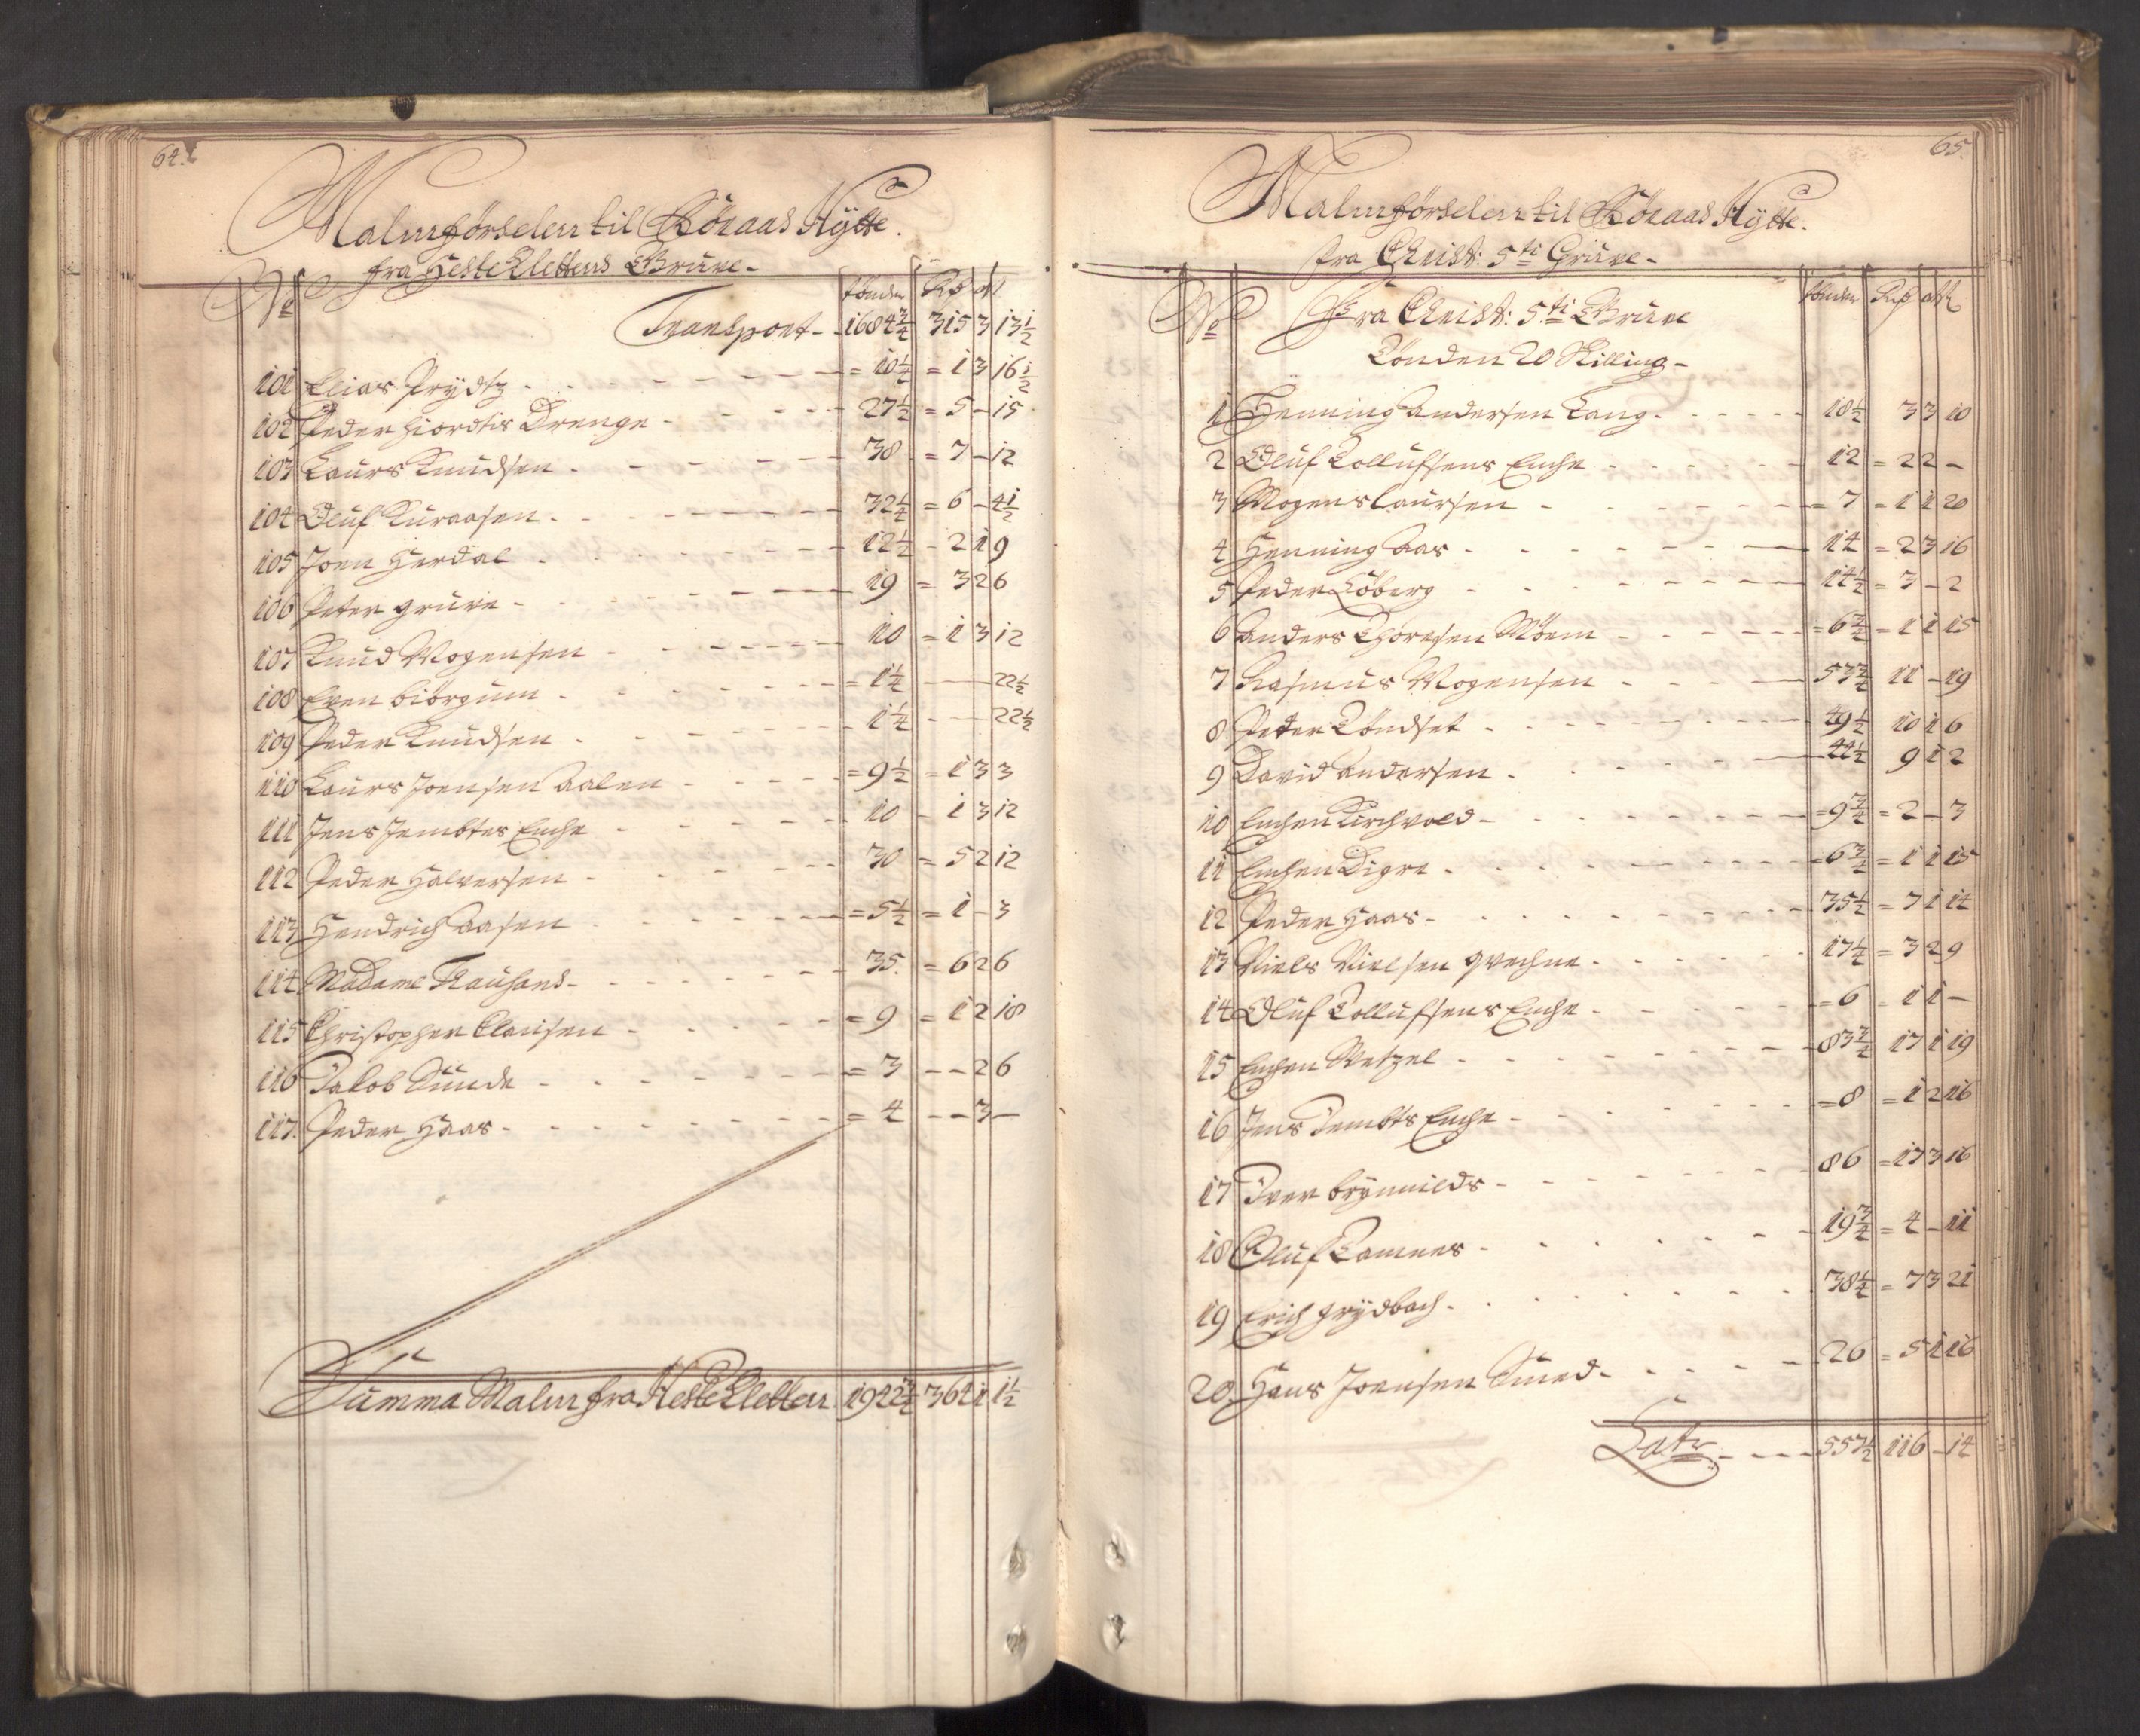 64.
Malmförselen til Röraas Hytte.
fra Hesteklettens Gruve
No
tönder Rd ort
Transport 1684 3/4 315 3 13 1/2
101 Elias Prydtz = 10 1/2 = 1 3 16 1/2
102 Peder Hiordtis Drenge 27 1/2 = 5 - 15
103 Laurs Knudsen 38 = 7 - 12
104 Oluf Kuraasen 32 1/4 = 6 - 4 1/2
105 Joen Herdal 12 1/2 - 2 1 9
106 Peter Grüve 19 = 3 2 6
107 Knud Mogensen 10 = 1 3 12
108 Even Biörgum = 1 1/4 - - 22 1/2
109 Peder Knudsen 1 1/4 - - 22 1/2
110 Laurs Joensen Aalen = 9 1/2 = 1 3 3
111 Jens Jembtes Enche 10 - 1 3 12
112 Peder Halversen 30 = 5 2 12
113 Hendrich Aasen = 5 1/2 = 1 - 3
114 Madame 35. = 6 2 6
115 Christopher Clausen = 9 = 1 2 18
116 Jakob Sunde = 3 - - 2 6
117. Peder Haas = 4 - - 3 -
Summa Malm fra Hestekletten 1942 3/4 364 1 1 1/2
65.
Malmförselen til Röraas Hytte.
fra Christ: 5ti Grüve
No
tönder Rd ort
Fra Christ: 5ti Gruve
Tönden 20 Skilling
1 Henning Andersen Lang 18 1/2 3 3 10
2 Oluf Tollufsens Enche 12 = 2 2 -
3 Mogens Laursen = 7 = 1 1 20
4 Henning Aas 14 = 2 3 16
5 Peder Löberg 14 1/2 = 3 - 2
6 Anders Thoresen Möem = 6 3/4 = 1 1 15
7 Rasmus Mogensen 57 3/4 11 - 19
8 Peter Töndset 49 1/2 10 1 6
9 David Andersen 44 1/2 9 1 2
10 Enchen Kirchvold = 9 3/4 = 2 - 3
11 Enchen Digre = 6 3/4 = 1 1 15
12 Peder Haas 35 1/2 = 7 1 14
13 Niels Nielsen Qvechne 17 1/4 = 3 2 9
14 Oluf Tollufsens Enche = 6 = 1 1 -
15 Enchen Wetzel 83 3/4 17 1 19
16 Jens Jembts Enche = 8 = 1 2 16
17 Iver Brynnilds 86 = 17 3 16
18 Oluf Tamnes 19 3/4 = 4 - 11
19 Erich Grydbach 38 1/4 = 7 3 21
20. Hans Joensen Smed 26 = 5 1 16
Latr 557 1/2 116 - 14